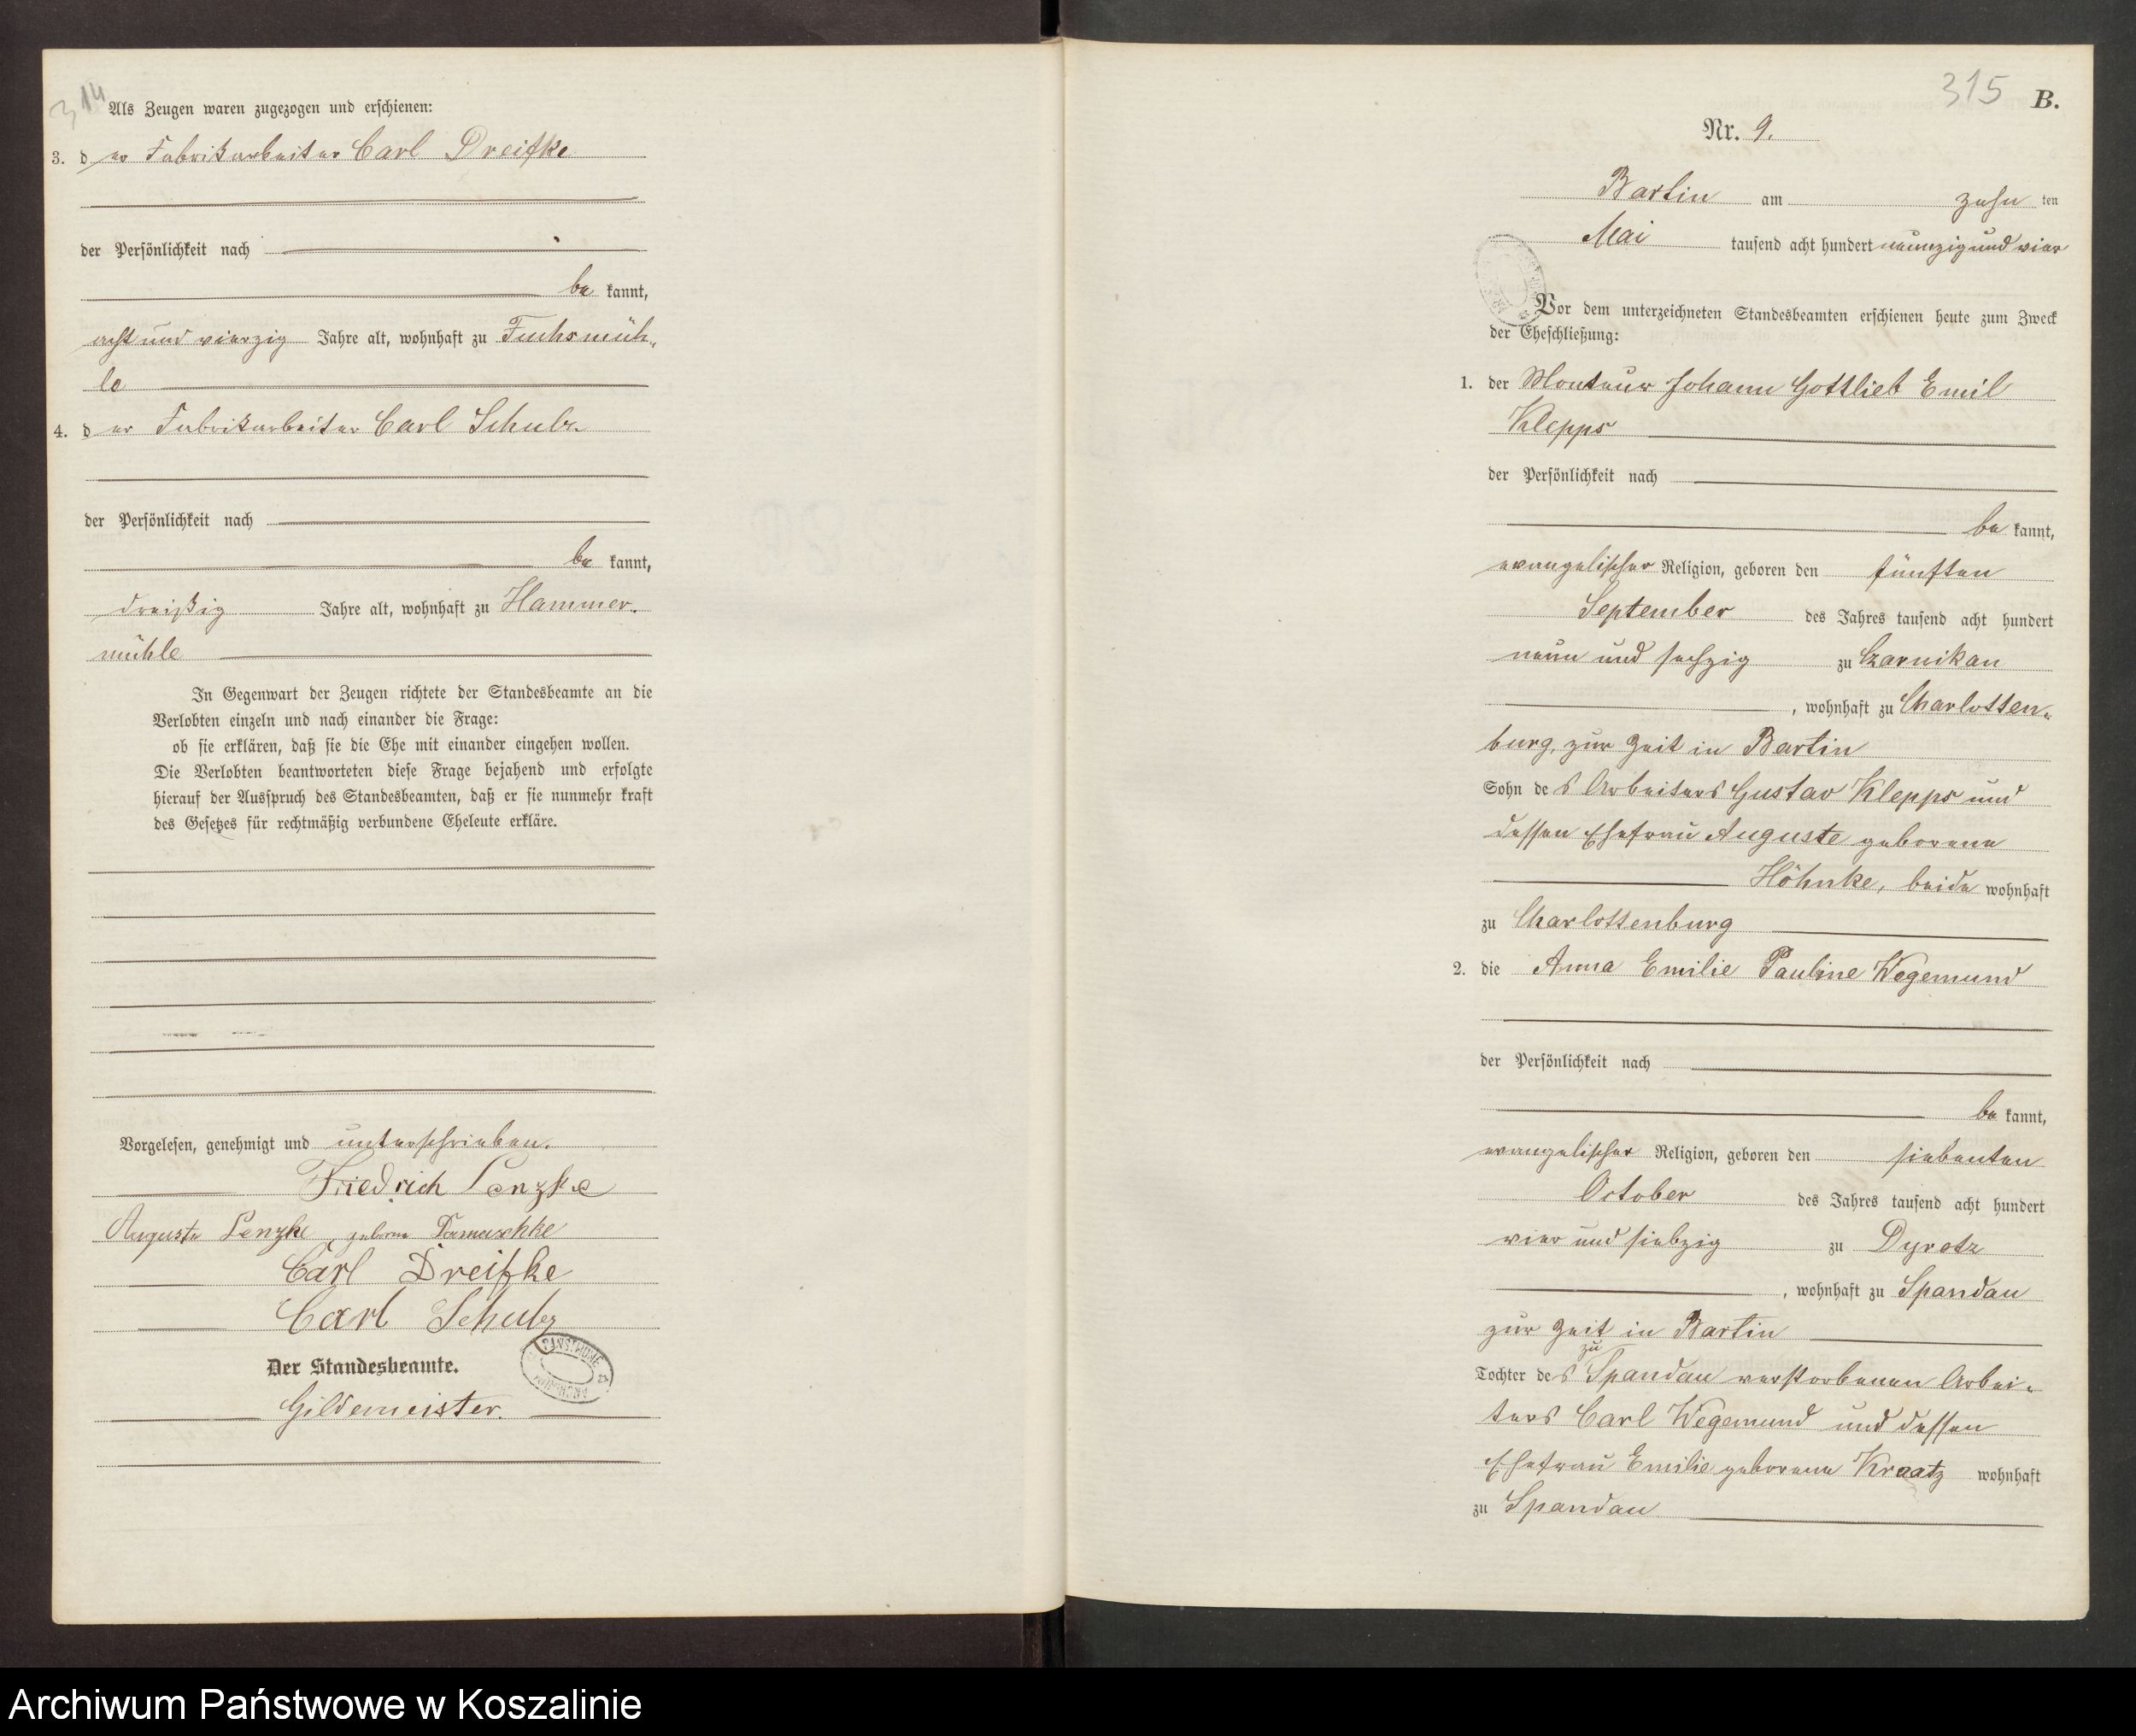 314
Als Zeugen waren zugezogen und erschienen:
3. der Fabrikarbeiter Carl Dreifke
der Persönlichkeit nach
be kannt,
acht und vierzig Jahre alt, wohnhaft zu Fuchsmüh-
le
4. der Fabrikarbeiter Carl Schulz
der Persönlichkeit nach
be kannt,
dreißig Jahre alt, wohnhaft zu Hammer-
mühle
In Gegenwart der Zeugen richtete der Standesbeamte an die
Verlobten einzeln und nach einander die Frage:
ob sie erklären, daß sie die Ehe mit einander eingehen wollen.
Die Verlobten beantworteten diese Frage bejahend und erfolgte
hierauf der Ausspruch des Standesbeamten, daß er sie nunmehr kraft
des Gesetzes für rechtmäßig verbundene Eheleute erkläre.
Vorgelesen, genehmigt und unterschrieben.
Friedrich Lenzke
Auguste Lenzke geborne Damaschke
Carl Dreifke
Carl Schulz
Der Standesbeamte.
Gildemeister.
315 B.
Nr. 9.
Bartin am zehn ten
Mai tausend acht hundert neunzig und vier
Vor dem unterzeichneten Standesbeamten erschienen heute zum Zweck
der Eheschließung:
1. der Monteur Johann Gottlieb Emil
Klepps
der Persönlichkeit nach
be kannt,
evangelischer Religion, geboren den fünften
September des Jahres tausend acht hundert
neun und sechzig zu Czarnikau
, wohnhaft zu Charlotten-
burg, zur Zeit in Bartin
Sohn des Arbeiters Gustav Klepps und
dessen Ehefrau Auguste geborene
Höhnke, beide wohnhaft
zu Charlottenburg
2. die Anna Emilie Pauline Wegemund
der Persönlichkeit nach
be kannt,
evangelischer Religion, geboren den siebenten
October des Jahres tausend acht hundert
vier und siebzig zu Dyrotz
, wohnhaft zu Spandau
zur Zeit in Bartin
zu
Tochter des Spandau verstorbenen Arbei-
ters Carl Wegemund und dessen
Ehefrau Emilie geborene Kraatz wohnhaft
zu Spandau
Archiwum Państwowe w Koszalinie